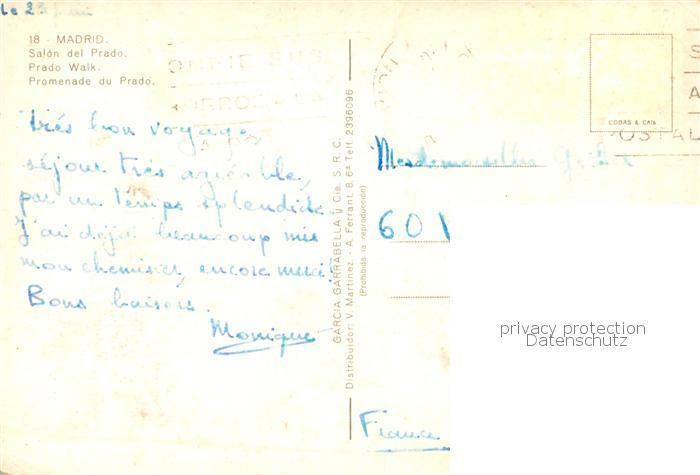 Le 23 juin
18 - MADRID.
Salón del Prado.
Prado Walk.
Promenade du Prado.
Très bon voyage,
séjour très agréable,
par un temps splendide.
J'ai déjà beaucoup mis
mon chemisier, encore merci!
Bons baisers.
Monique
GARCIA GARRABELLA y Cia. S. R. C.
Distribuidor: V. Martinez. - A. Ferrant, 8, 64 - Telf. 2396096
(Prohibida la reproducción)
COBAS & Caía
POSTAL
Mesdemoiselles
60
France
privacy protection
Datenschutz